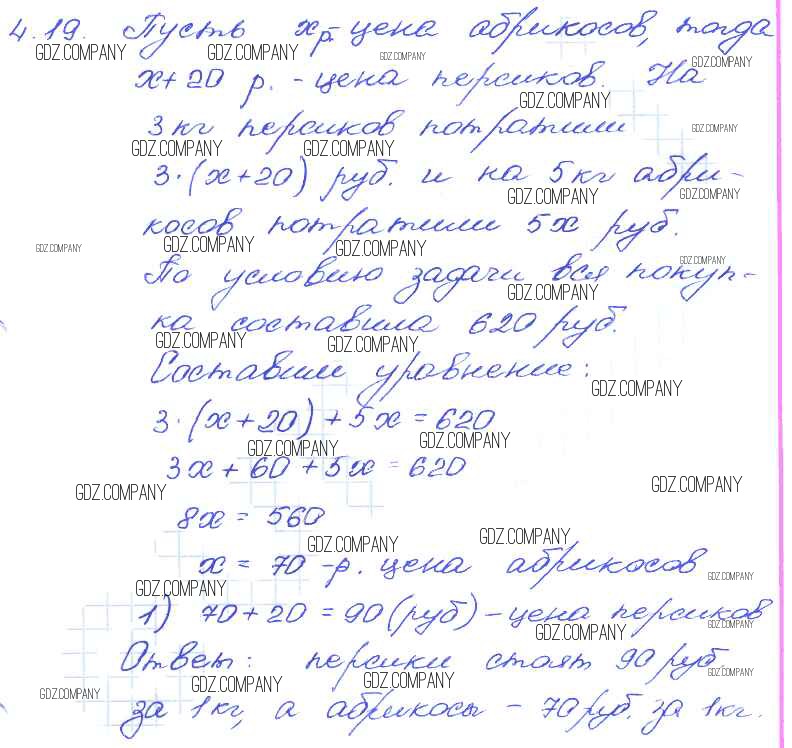 4.19. Пусть x р. - цена абрикосов, тогда
GDZ.COMPANY GDZ.COMPANY GDZ.COMPANY GDZ.COMPANY
x + 20 р. - цена персиков. На
GDZ.COMPANY
3 кг персиков потратили
GDZ.COMPANY
GDZ.COMPANY GDZ.COMPANY
3·(x+20) руб. и на 5 кг абри-
GDZ.COMPANY GDZ.COMPANY
косов потратили 5x руб.
GDZ.COMPANY GDZ.COMPANY GDZ.COMPANY
По условию задачи вся покуп-
GDZ.COMPANY
GDZ.COMPANY
ка составила 620 руб.
GDZ.COMPANY GDZ.COMPANY
Составим уравнение:
GDZ.COMPANY
3·(x+20)+5x = 620
GDZ.COMPANY GDZ.COMPANY
3x + 60 + 5x = 620
GDZ.COMPANY GDZ.COMPANY
8x = 560
GDZ.COMPANY GDZ.COMPANY
x = 70 - р. цена абрикосов
GDZ.COMPANY GDZ.COMPANY
1) 70 + 20 = 90 (руб) - цена персиков
GDZ.COMPANY GDZ.COMPANY
Ответ: персики стоят 90 руб.
GDZ.COMPANY GDZ.COMPANY GDZ.COMPANY GDZ.COMPANY
за 1 кг, а абрикосы - 70 руб. за 1 кг.